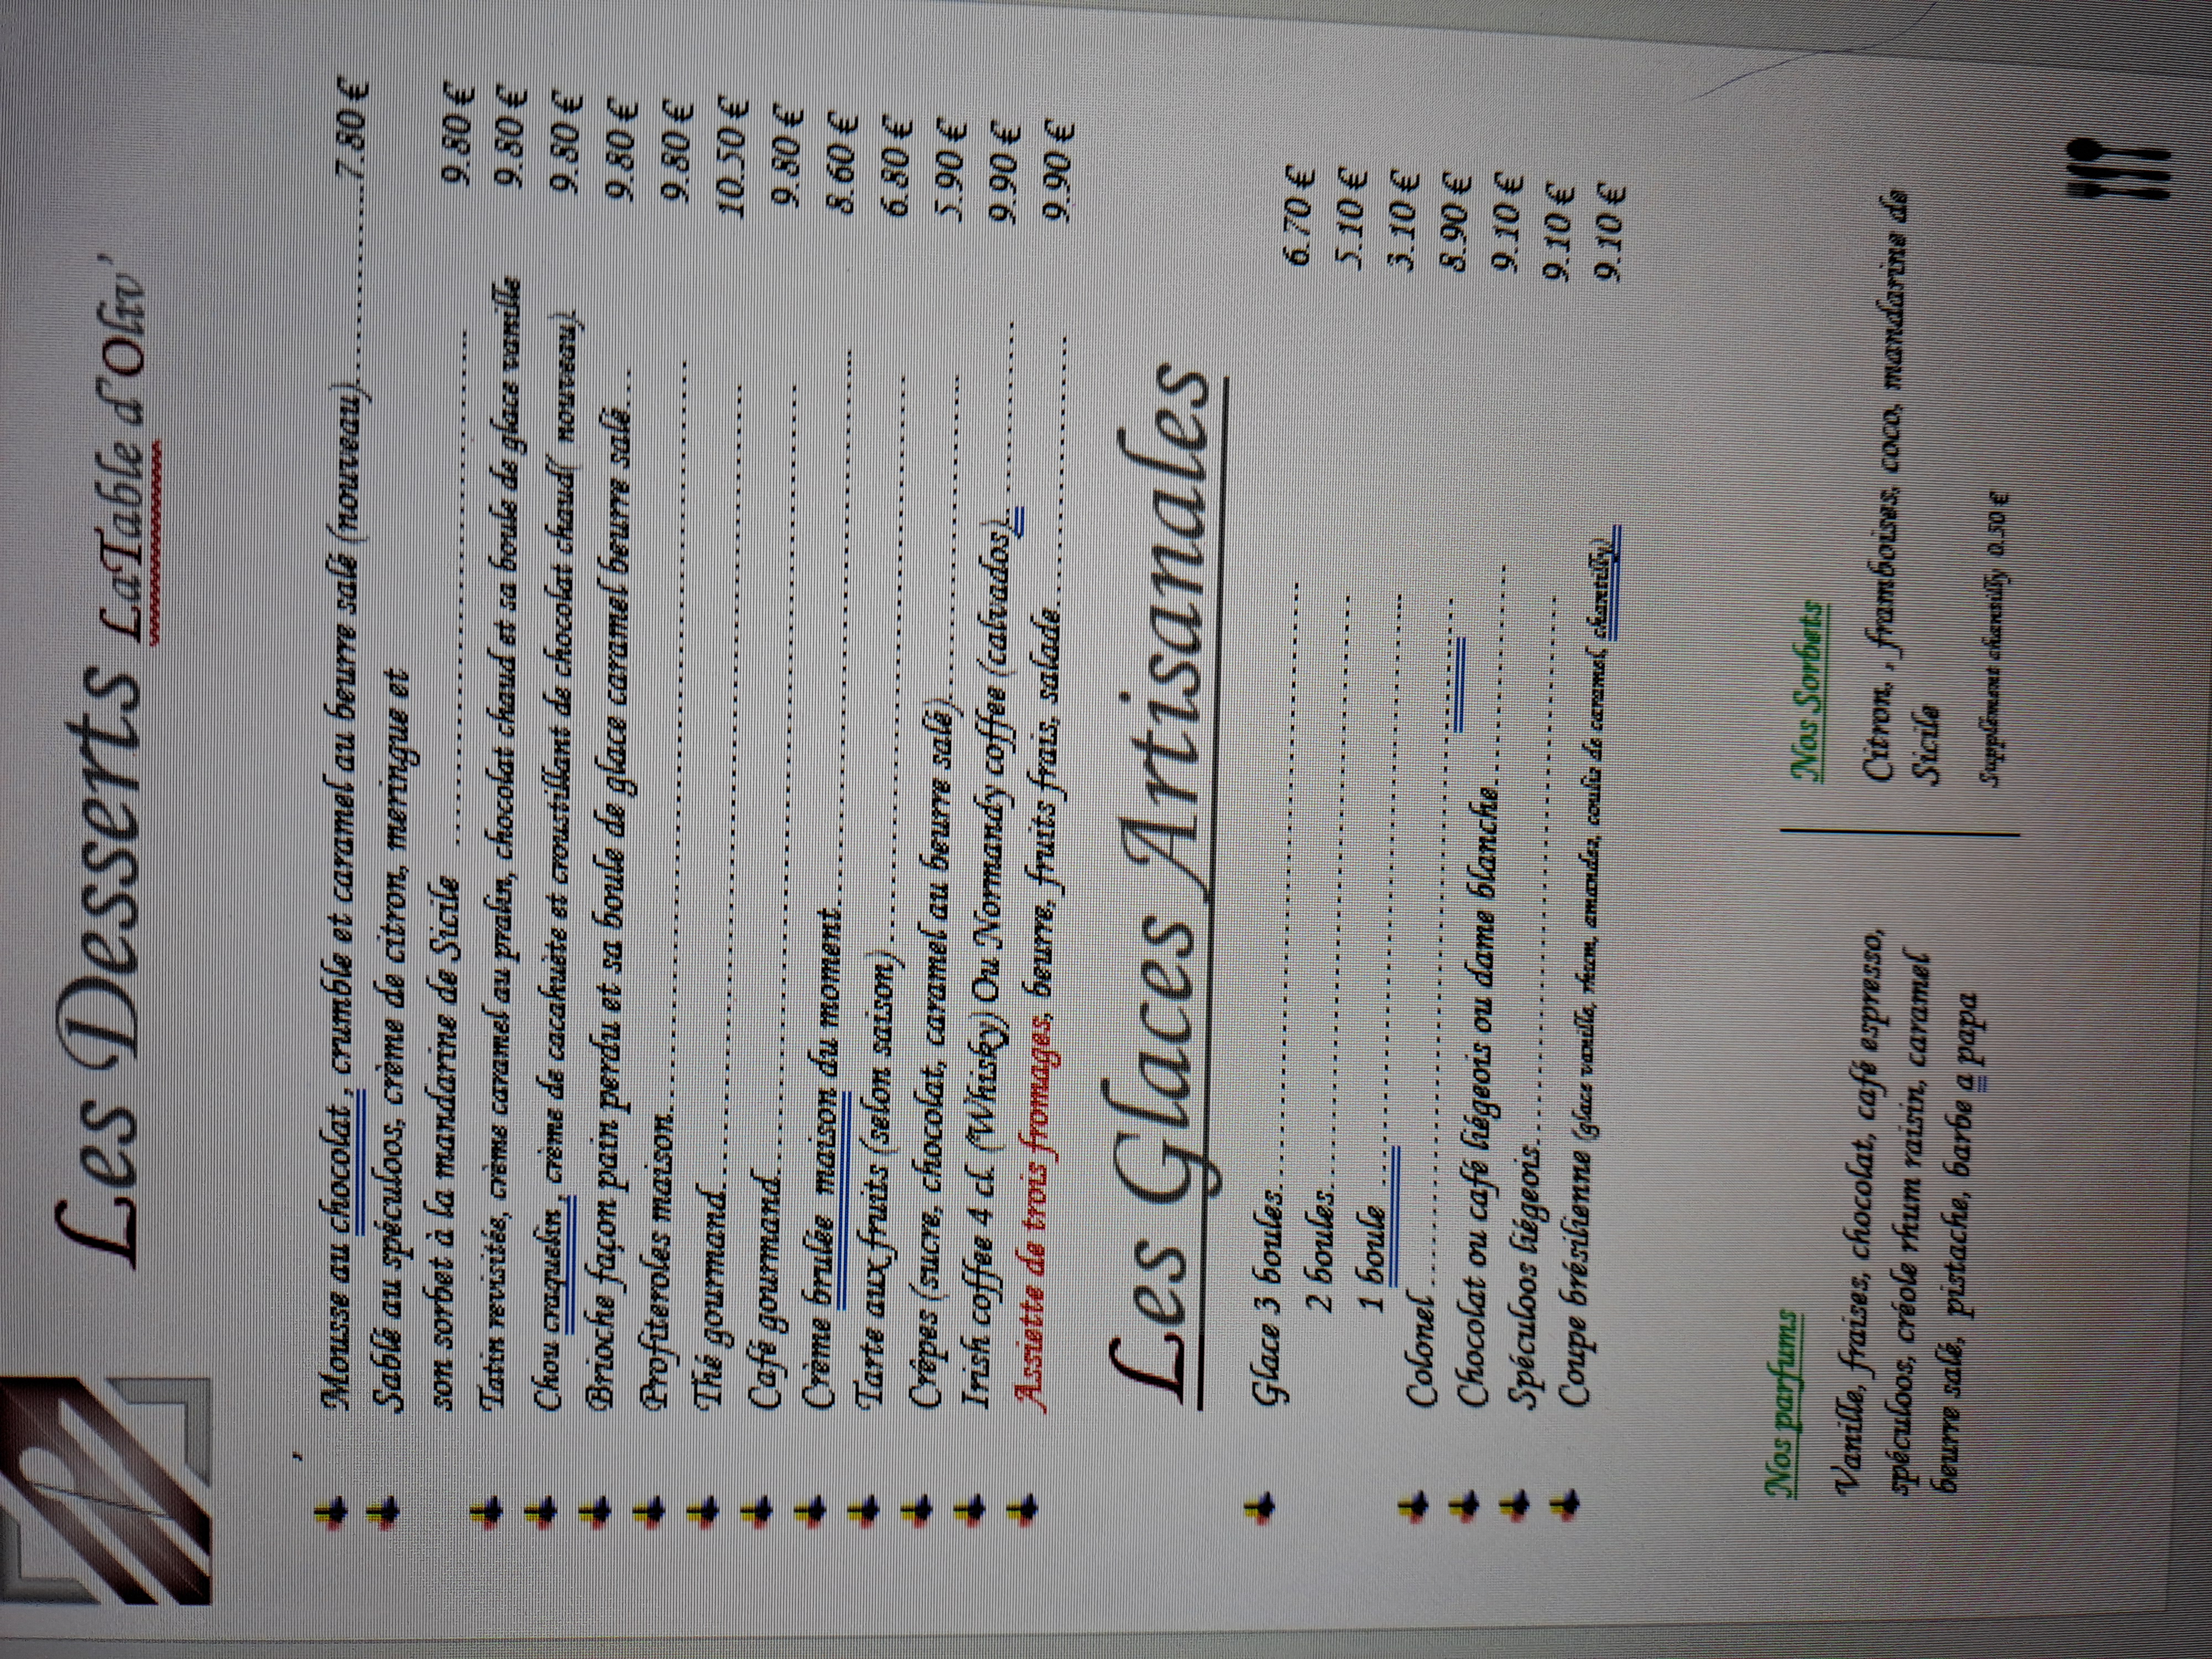 Les Desserts LaTable d'Oliv'
,
Mousse au chocolat , crumble et caramel au beurre salé (nouveau)..................7.80 €
Sablé au spéculoos, crème de citron, meringue et
son sorbet à la mandarine de Sicile .................................................. 9.80 €
Tatin revisitée, crème caramel au pralin, chocolat chaud et sa boule de glace vanille 9.80 €
Chou craquelin , crème de cacahuète et croustillant de chocolat chaud( nouveau) 9.80 €
Brioche façon pain perdu et sa boule de glace caramel beurre salé.... 9.80 €
Profiteroles maison............................................................ 9.80 €
Thé gourmand............................................................ 10.50 €
Café gourmand............................................................ 9.80 €
Crème brulée maison du moment.................................................. 8.60 €
Tarte aux fruits (selon saison).................................................. 6.80 €
Crêpes (sucre, chocolat, caramel au beurre salé)............................ 5.90 €
Irish coffee 4 cl. (Whisky) Ou Normandy coffee (calvados).................. 9.90 €
Assiette de trois fromages, beurre, fruits frais, salade......................... 9.90 €
Les Glaces Artisanales
Glace 3 boules............................................................ 6.70 €
2 boules............................................................ 5.10 €
1 boule ............................................................ 3.10 €
Colonel ............................................................ 8.90 €
Chocolat ou café liégeois ou dame blanche......................... 9.10 €
Spéculoos liégeois............................................................ 9.10 €
Coupe brésilienne (glace vanille, rhum, amandes, coulis de caramel, chantilly) 9.10 €
Nos parfums
Vanille, fraises, chocolat, café espresso,
spéculoos, créole rhum raisin, caramel
beurre salé, pistache, barbe a papa
Nos Sorbets
Citron, , framboises, coco, mandarine de
Sicile
Supplément chantilly 0.50 €